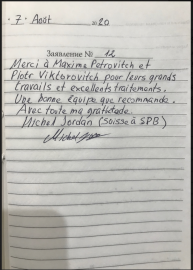 . 7. Août 2020
Заявление № 12
Merci à Maxime Petrovitch et
Piotr Viktorovitch pour leurs grands
travails et excellents traitements.
Une bonne équipe que recommande.
Avec toute ma gratitude.
Michel Jordan (Suisse à SPB)